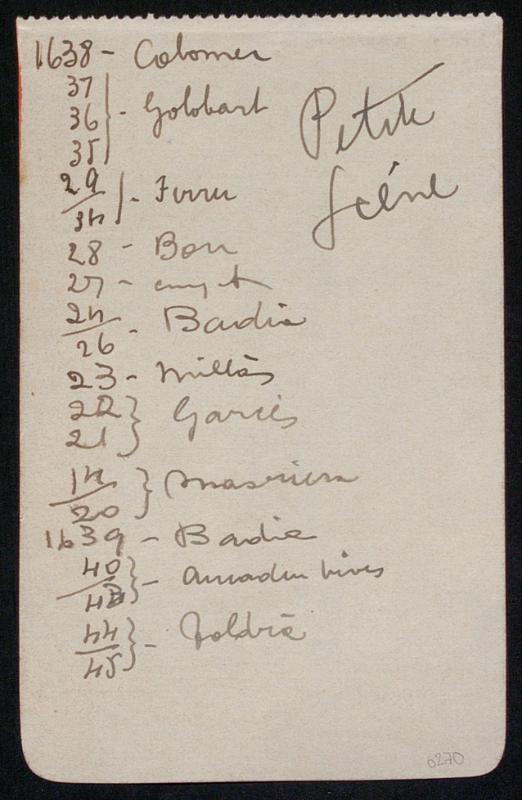 1638 - Colomer
37
36 } - Golobart
35
29
34 } - Ferrer
28 - Bou
27 -
24
26 - Badia
23 - Millàs
22
21 } Garcés
14
20 } Masriera
1639 - Badia
40
43 } - Amadeu Vives
44
45 } - Toldrà
Petite
Scéne
6270